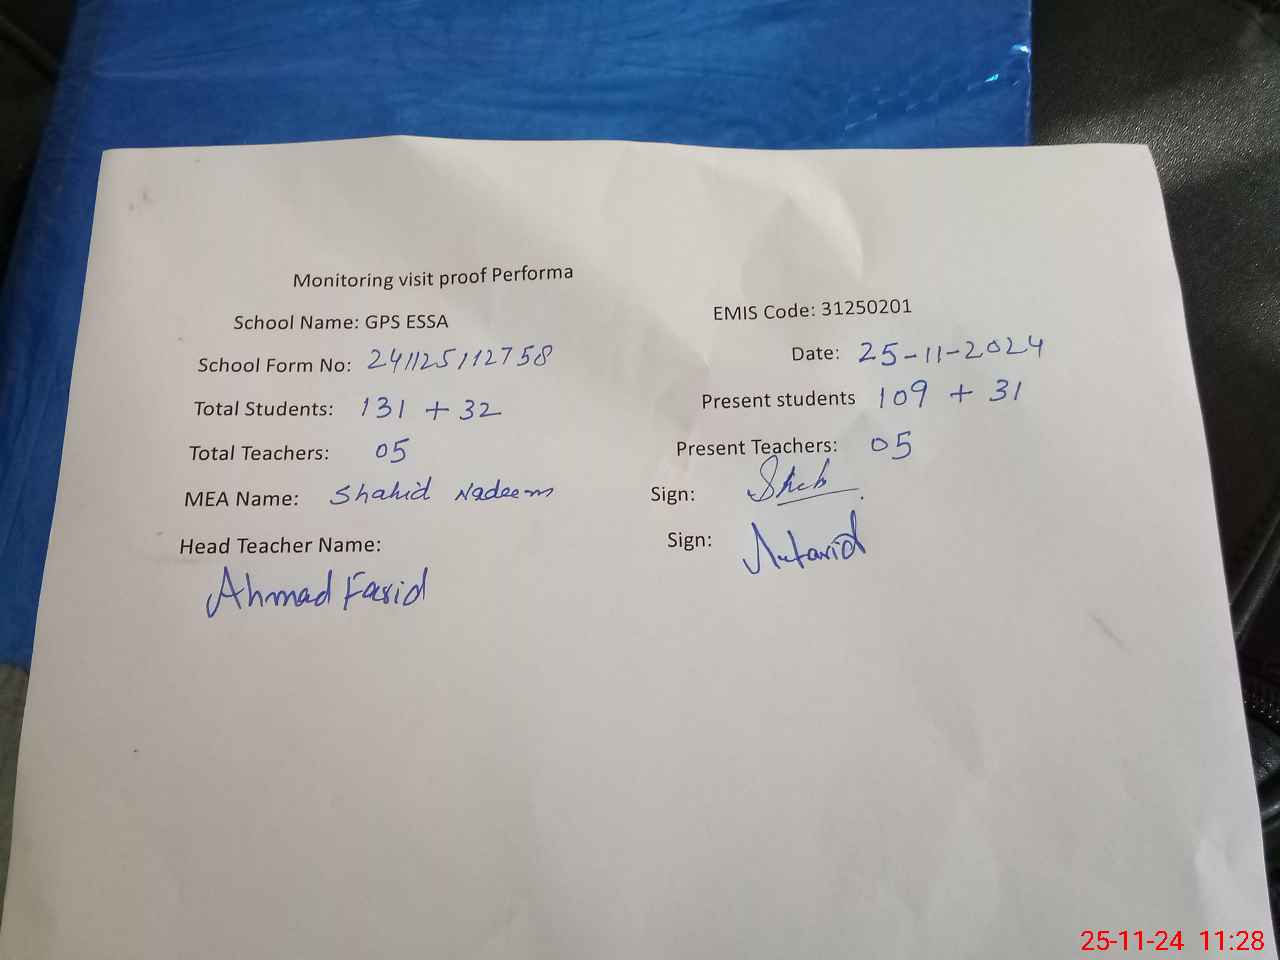 Monitoring visit proof Performa
School Name: GPS ESSA EMIS Code: 31250201
School Form No: 241125112758 Date: 25-11-2024
Total Students: 131 + 32 Present students 109 + 31
Total Teachers: 05 Present Teachers: 05
MEA Name: Shahid Nadeem Sign:
Head Teacher Name: Sign:
Ahmad Farid
25-11-24 11:28